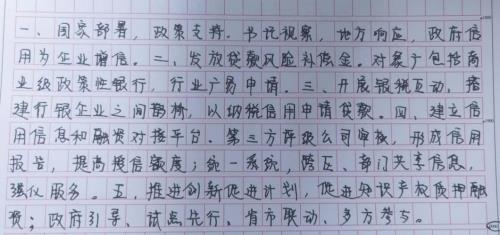 一、国家部署，政策支持。书记视察，地方响应，政府信
用为企业增信。二、发放贷款风险补偿金。对象广包括商
业级政策性银行，行业广易申请。三、开展银税互动，搭
建行银企业之间桥，以纳税信用申请贷款。四、建立信
用信息和融资对接平台。第三方评级公司审核，形成信用
报告，提高授信额度；统一系统，跨区、部门共享信息，
强化服务。五、推进创新促进计划，促进知识产权质押融
资；政府引导、试点先行、省市联动、多方参与。